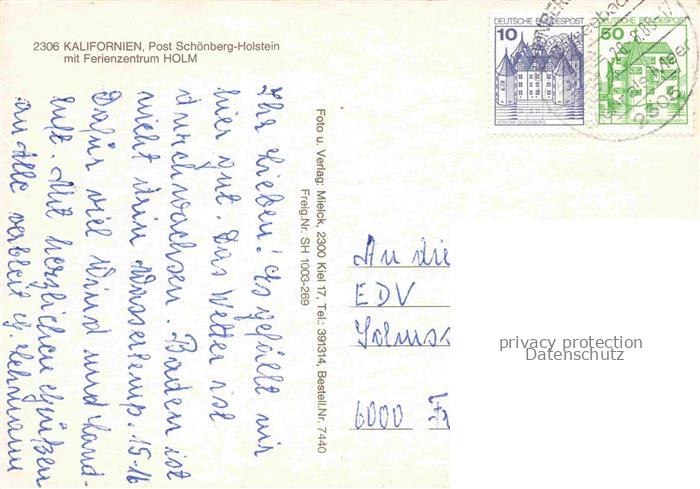 2306 KALIFORNIEN, Post Schönberg-Holstein
mit Ferienzentrum HOLM
Ihr Lieben! Es gefällt mir
hier gut. Das Wetter ist
durchwachsen. Baden ist
nicht drin Wassertemp. 15-16
Dafür viel Wind und Land-
luft. Mit herzlichen Grüßen
an Alle verbleibt Lehmann
Foto u. Verlag: Mielck, 2300 Kiel 17, Tel.: 391314, Bestell.Nr. 7440
Freig.Nr. SH 1003-269
DEUTSCHE BUNDESPOST
10
SCHLOSS GLÜCKSBURG
DEUTSCHE BUNDESPOST
50
An die
EDV
6000 Fr
privacy protection
Datenschutz